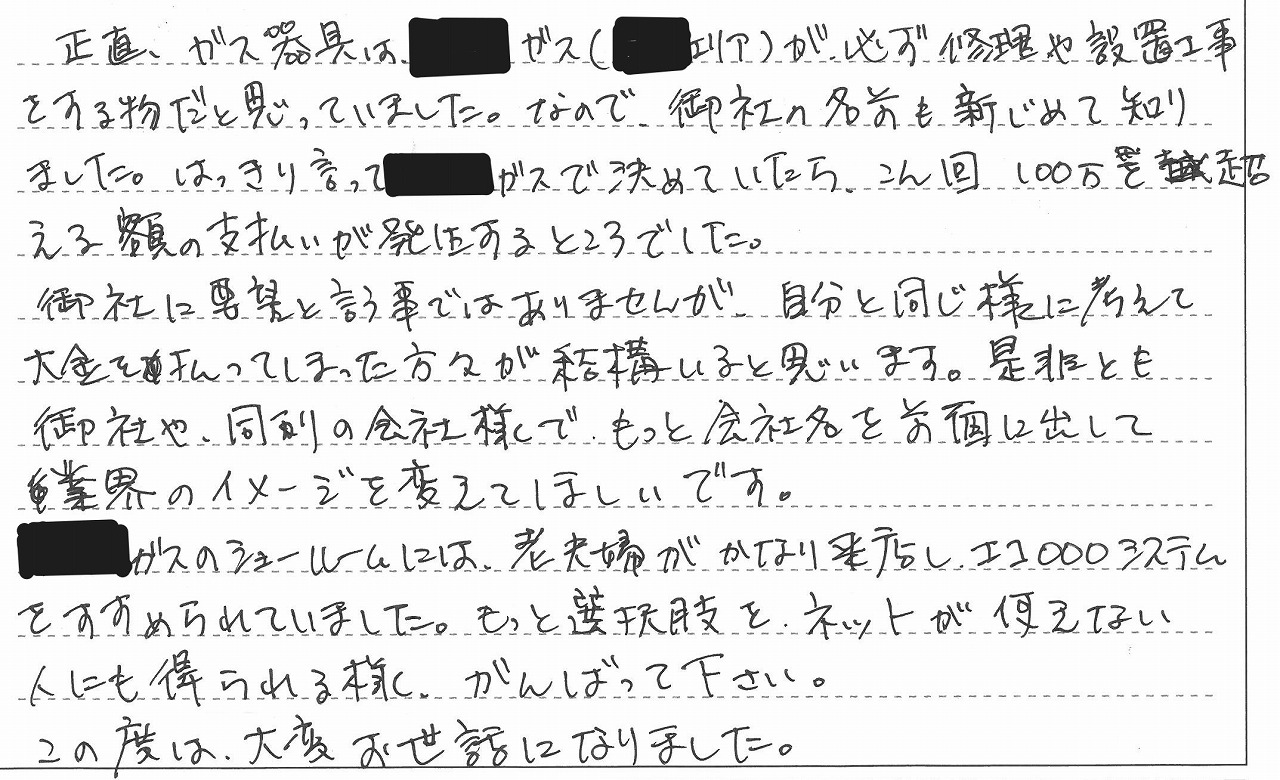 正直、ガス器具は、ガス(エリア)が、必ず修理や設置工事
をする物だと思っていました。なので、御社の名前も新じめて知り
ました。はっきり言ってガスで決めていたら、こん回 100万を超
える額の支払いが発生するところでした。
御社に要望と言う事ではありませんが、自分と同じ様に考えて
大金を払ってしまった方々が結構いると思います。是非とも
御社や、同列の会社様で、もっと会社名を前面に出して
業界のイメージを変えてほしいです。
ガスのショールームには、老夫婦がかなり来店し、エコ000システム
をすすめられていました。もっと選択肢を、ネットが使えない
人にも得られる様に、がんばって下さい。
この度は、大変お世話になりました。